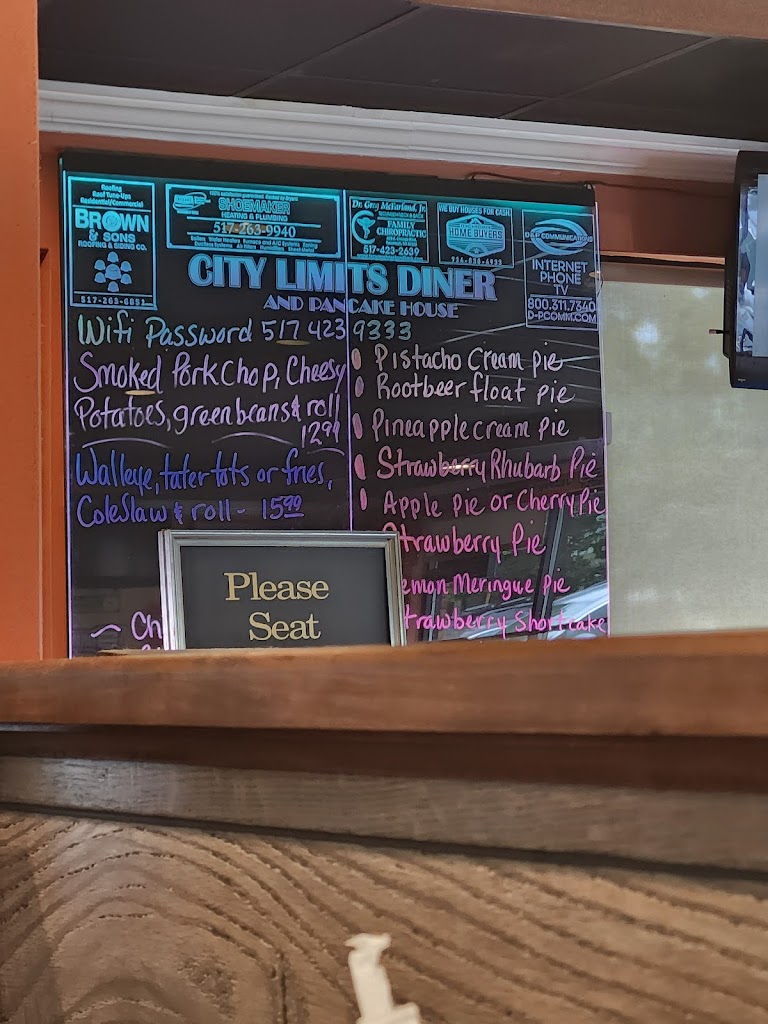 Roofing
Roof Tune-Ups
Residential/Commercial
BROWN
& SONS
ROOFING & SIDING CO.
517-263-6851
SHOEMAKER
HEATING & PLUMBING
517-263-9940
Dr. Greg McFarland, Jr.
FAMILY
CHIROPRACTIC
517-423-2639
WE BUY HOUSES FOR CASH
HOME BUYERS
D&P COMMUNICATIONS
INTERNET
PHONE
TV
800.311.7340
D-PCOMM.COM
CITY LIMITS DINER
AND PANCAKE HOUSE
Wifi Password 517 423 9333
Smoked Pork Chop, Cheesy
Potatoes, green beans & roll
12.99
Walleye, tater tots or fries,
Coleslaw & roll - 15.99
~ Ch
Pistacho Cream pie
Rootbeer float pie
Pineapple cream pie
Strawberry Rhubarb Pie
Apple Pie or Cherry Pie
Strawberry Pie
emon Meringue Pie
trawberry Shortcake
Please
Seat